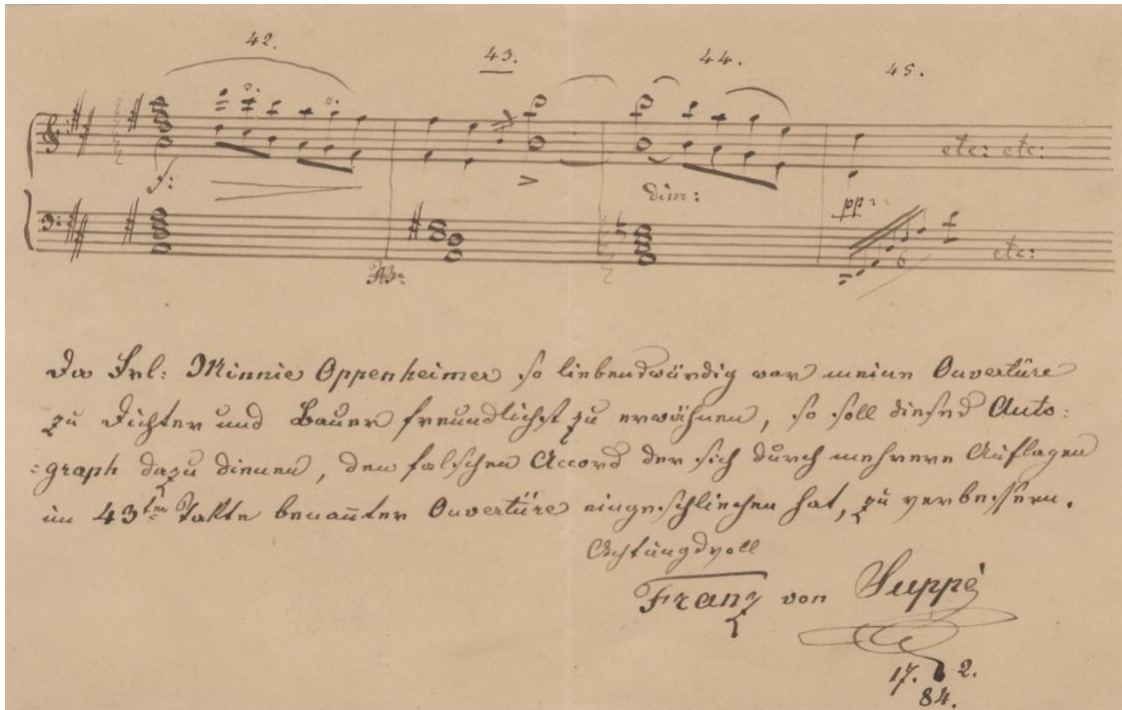 42. 43. 44. 45.
f: dim: pp: etc: etc:
6 etc:
Da Frl: Minnie Oppenheimer so liebenswürdig war meine Ouvertüre
zu Dichter und Bauer freundlichst zu erwähnen, so soll dieses Auto:
:graph dazu dienen, den falschen Accord der sich durch mehrere Auflagen
im 43ten Takte benannter Ouvertüre eingeschlichen hat, zu verbessern.
Achtungsvoll
Franz von Suppé
17. 2.
84.